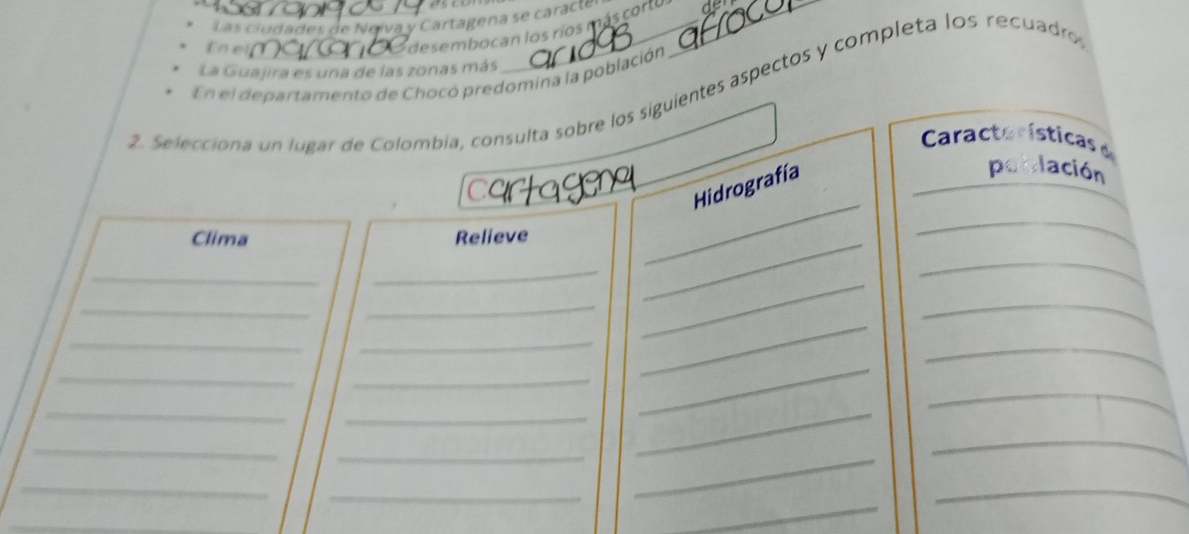 Las ciudades de Neiva y Cartagena se caracte
En el mar caribe desembocan los ríos más corto
La Guajira es una de las zonas más aridas
En el departamento de Chocó predomina la población afroco
2. Selecciona un lugar de Colombia, consulta sobre los siguientes aspectos y completa los recuadros
cartagena
Clima
Relieve
Hidrografía
Características de
población